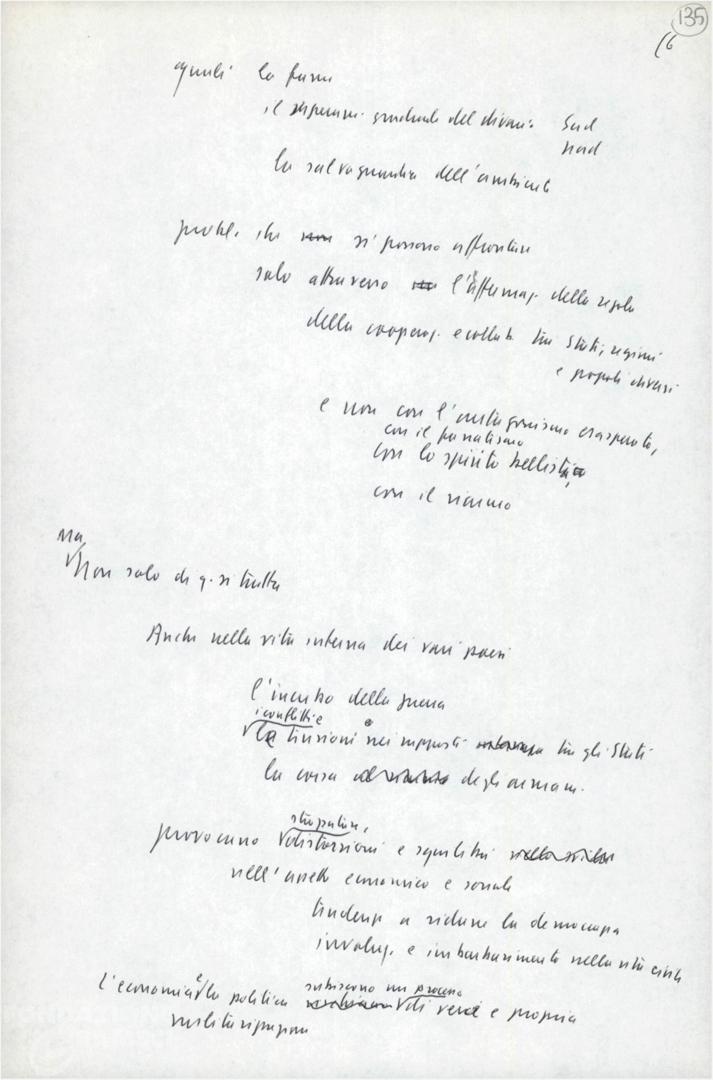 135
16
quali la fame
il superam. graduale del divario Sud
Nord
la salvaguardia dell'ambiente
probl. che non si possono affrontare
solo attraverso l'affermaz. della regola
della cooperaz. e collab. tra Stati, regimi
e popoli diversi
e non con l'antagonismo esasperato,
con il fanatismo
con lo spirito bellistico,
con il riarmo
Ma
Non solo di q. si tratta
Anche nella vita interna dei vari paesi
l'incubo della guerra
i conflitti e
le tensioni nei rapporti tra gli Stati
la corsa degli armam.
strozzature,
provocano distorsioni e squilibri nella vita
nell'assetto economico e sociale
tendenz a ridurre la democrazia
involuz. e imbarbarimento nella vita civile
subiscono un processo
l'economia e la politica di vera e propria
militarizzazione